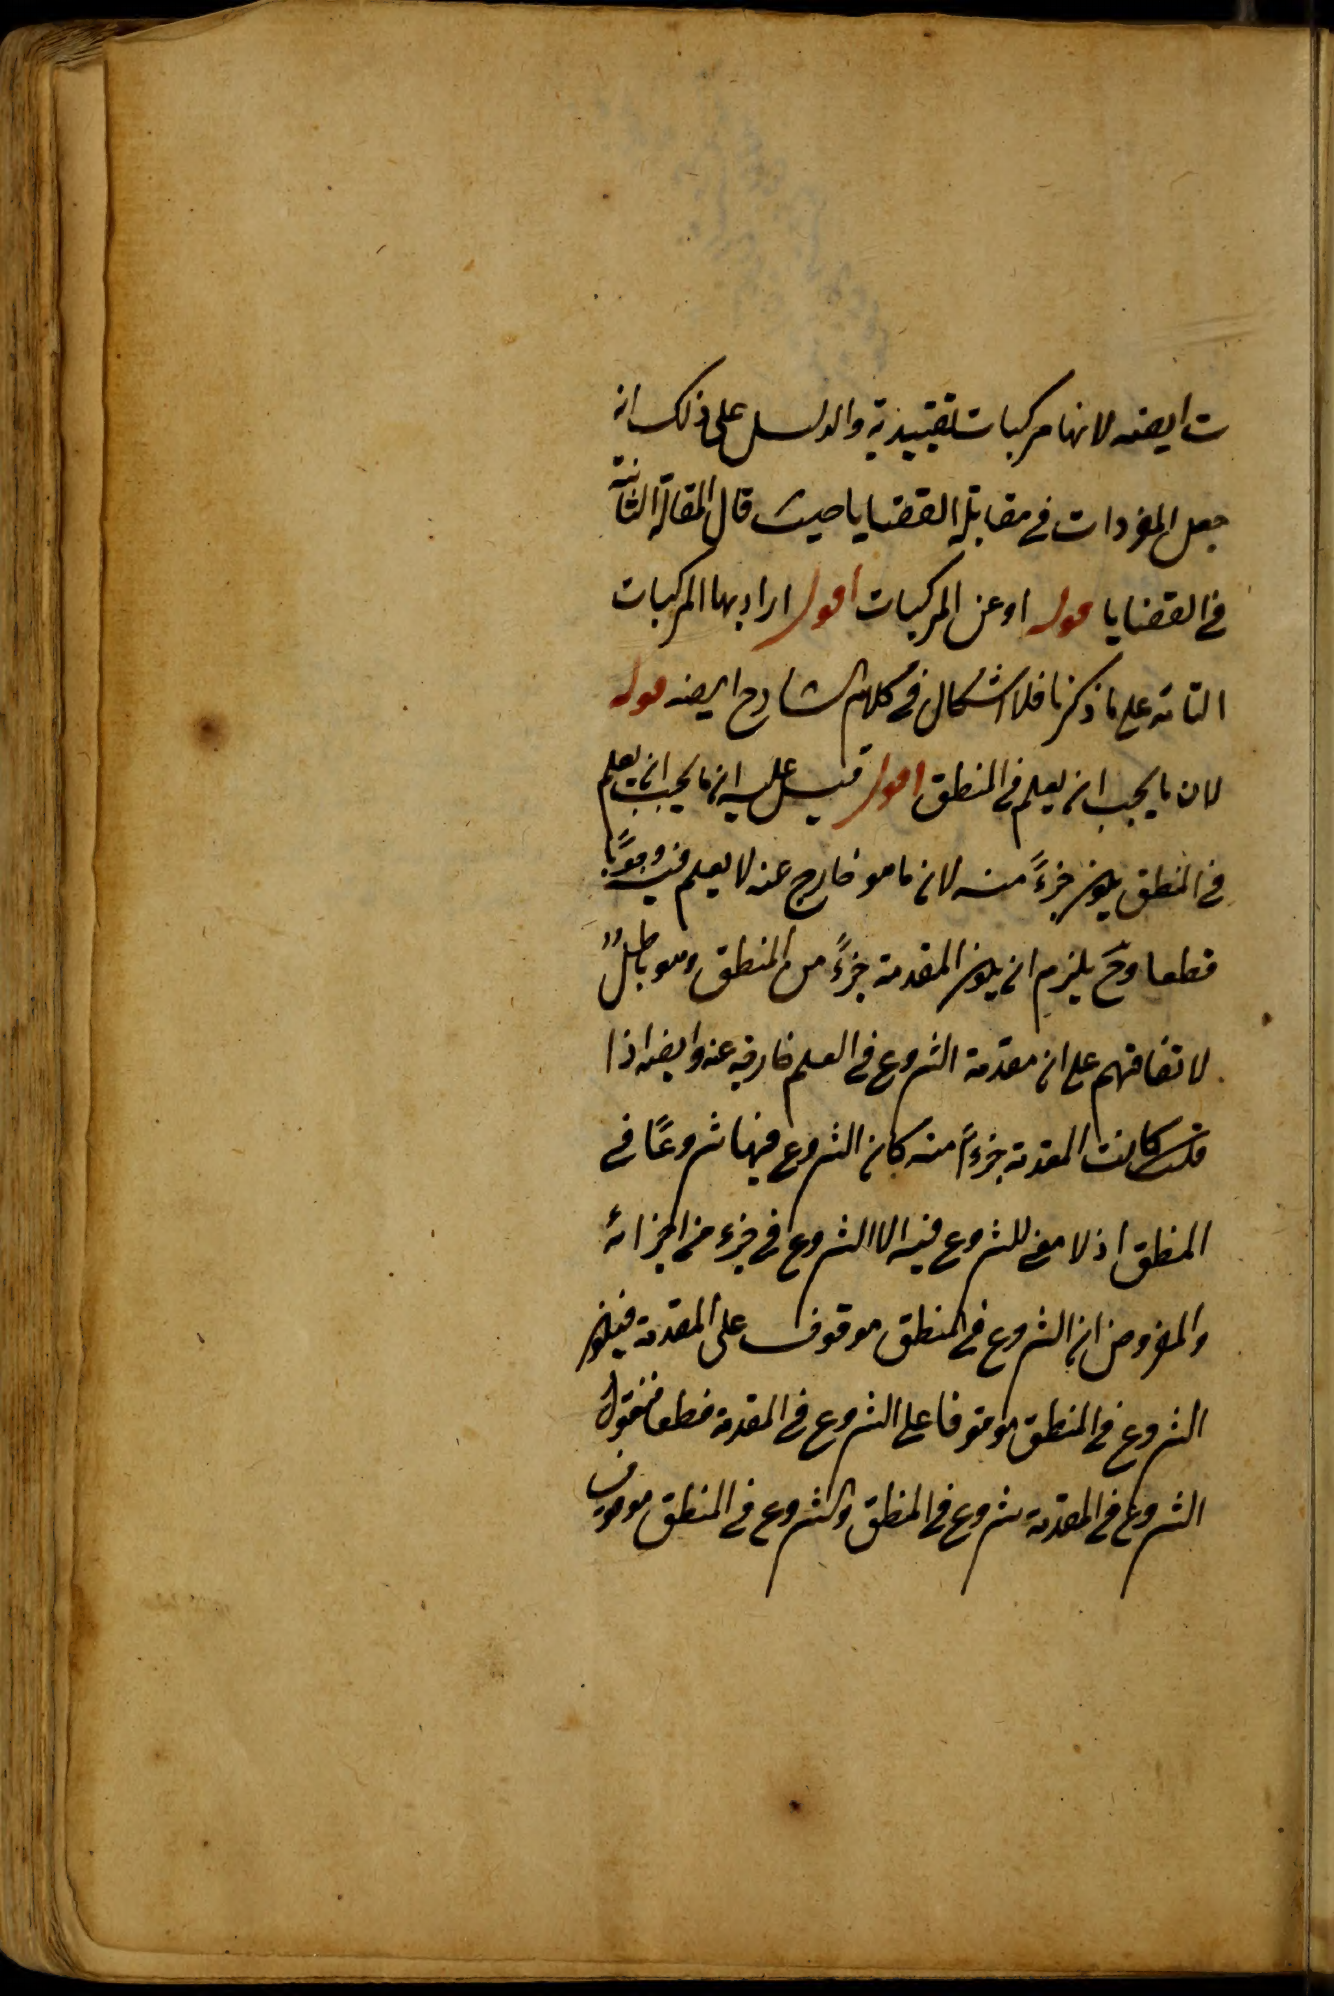 ت ايضه لانها مركبات تقييدية والدليل على ذلك انه
جعل المفردات في مقابلة القضايا حيث قال المقالة الثانية
في القضايا قوله او عن المركبات اقول اراد بها المركبات
التامه على ما ذكرنا فلا اشكال في كلام الشارح ايضه قوله
لان ما يجب ان يعلم في المنطق اقول قيل عليه ان ما يجب ان يعلم
في المنطق يكون جزءً منه لان ما هو خارج عنه لا يعلم فيه وجوبًا
قطعا وح يلزم ان يكون المقدمة جزءً من المنطق وهو باطلٌ
لاتفاقهم على ان مقدمة الشروع في العلم خارجة عنه وايضه اذا
كانت المقدمة جزءً منه كان الشروع فيها شروعًا في
المنطق اذ لا معنى للشروع فيه الا الشروع في جزء من اجزائه
والمفروض ان الشروع في المنطق موقوف على المقدمة فيكون
الشروع في المنطق موقوفا على الشروع في المقدمة قطعا فنقول
الشروع في المقدمة شروع في المنطق والشروع في المنطق موقوف